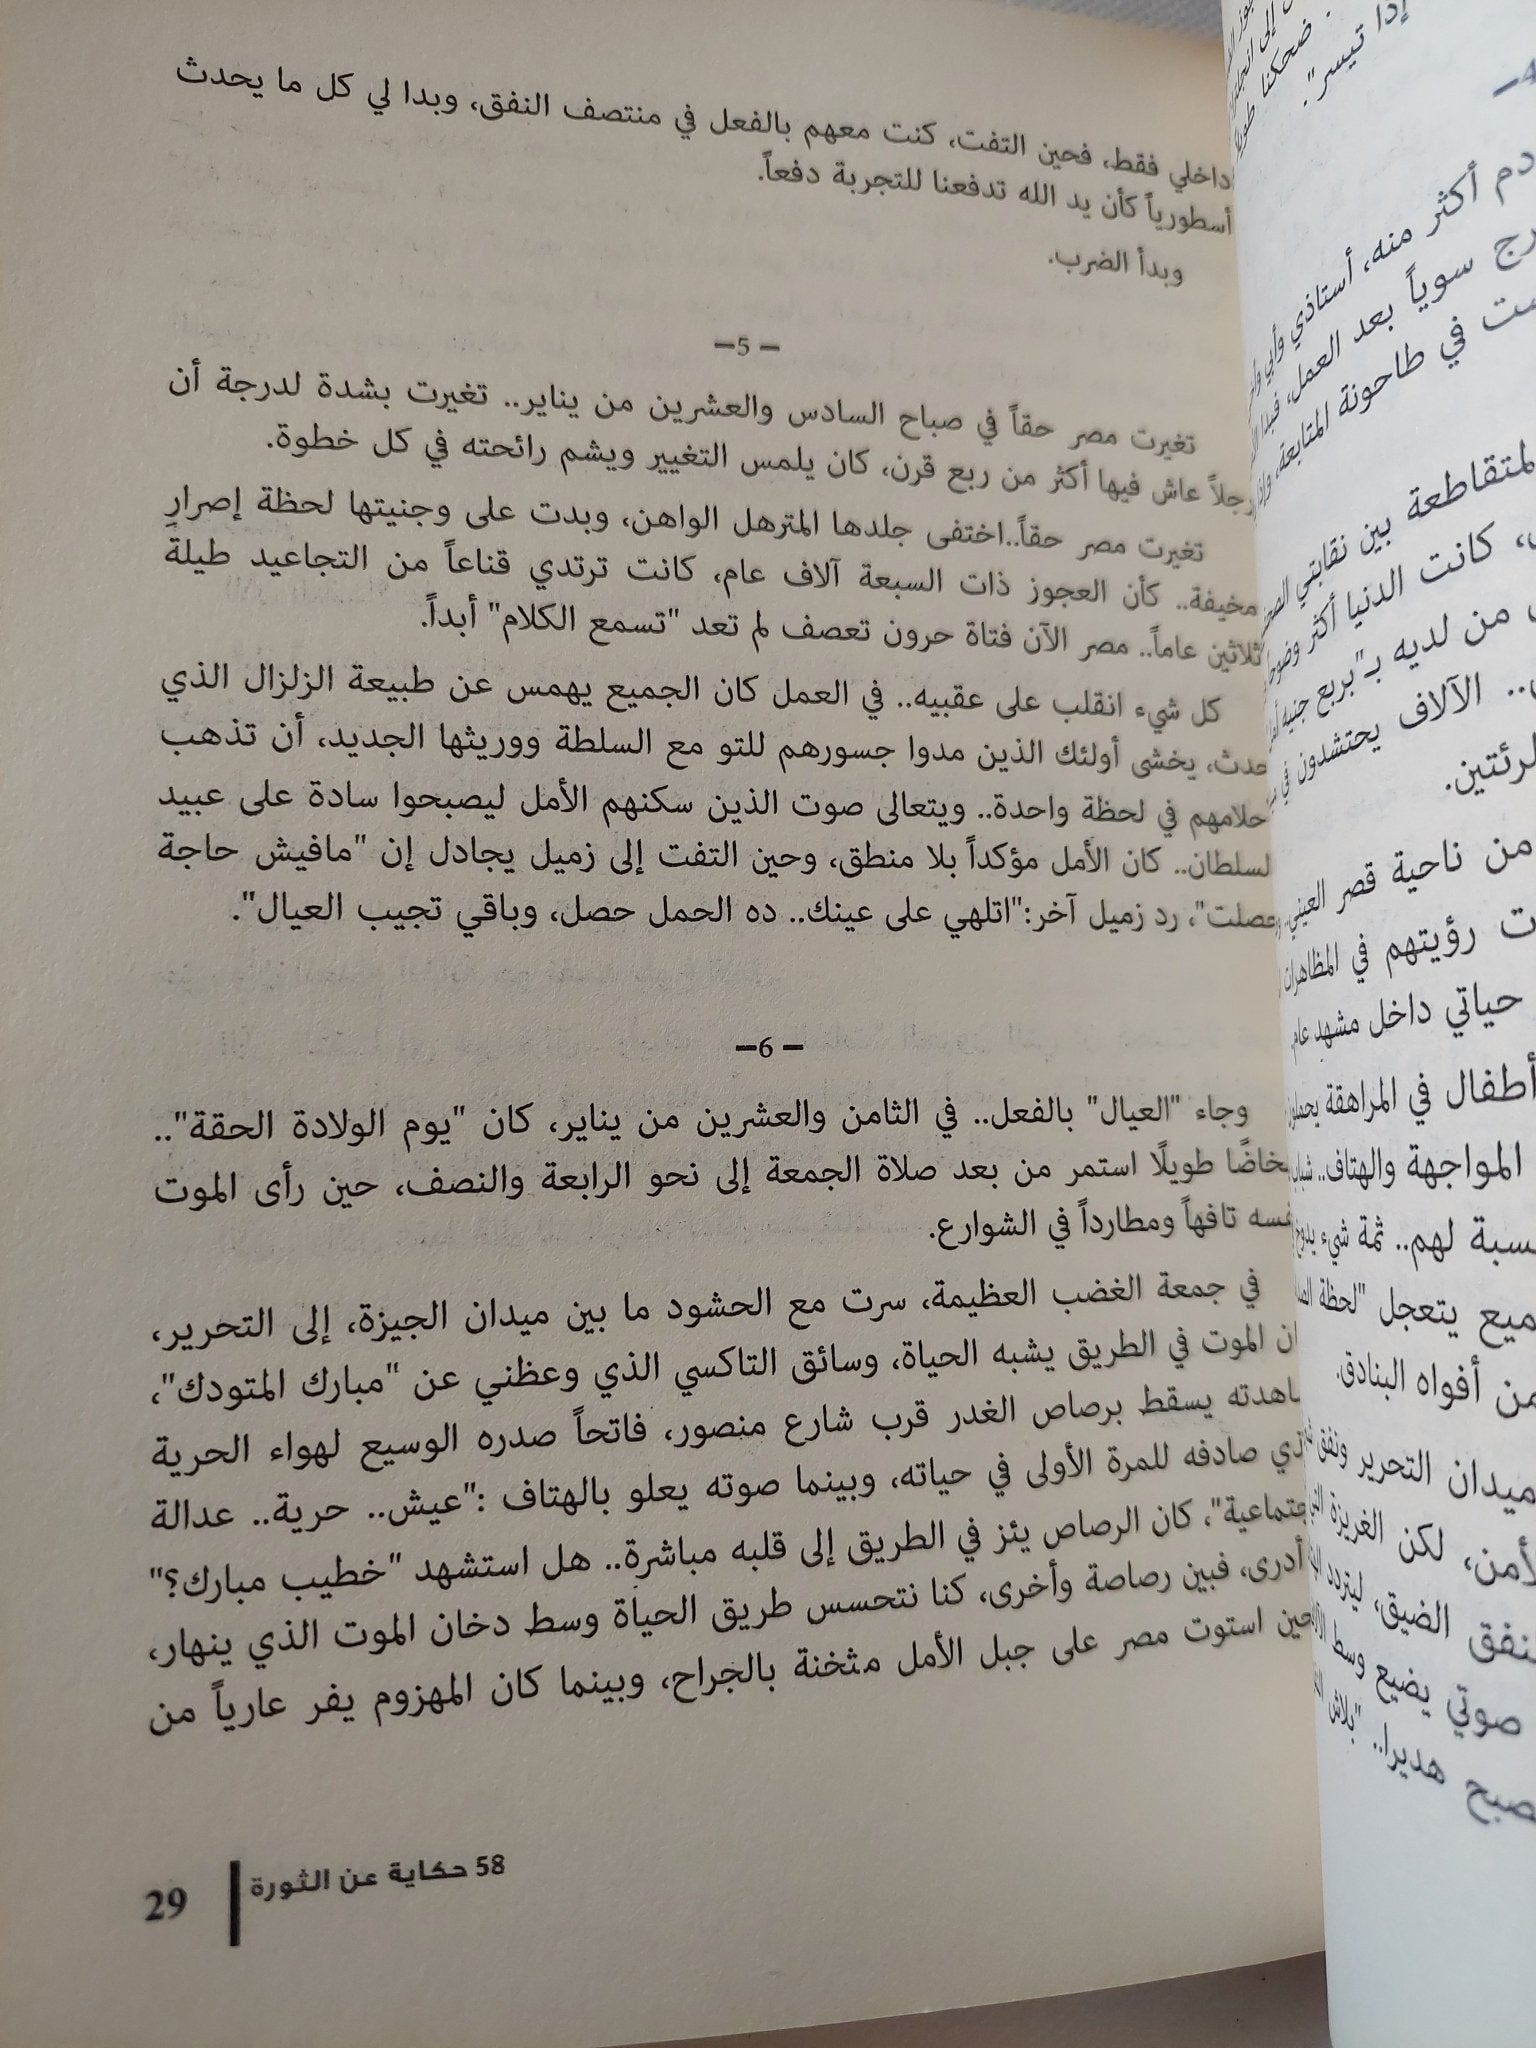 داخلي فقط، فحين التفت، كنت معهم بالفعل في منتصف النفق، وبدا لي كل ما يحدث
أسطورياً كأن يد الله تدفعنا للتجربة دفعاً.
وبدأ الضرب.
– 5–
تغيرت مصر حقاً في صباح السادس والعشرين من يناير.. تغيرت بشدة لدرجة أن
رجلاً عاش فيها أكثر من ربع قرن، كان يلمس التغيير ويشم رائحته في كل خطوة.
تغيرت مصر حقاً..اختفى جلدها المترهل الواهن، وبدت على وجنيتها لحظة إصرارٍ
مخيفة.. كأن العجوز ذات السبعة آلاف عام، كانت ترتدي قناعاً من التجاعيد طيلةَ
ثلاثين عاماً.. مصر الآن فتاة حرون تعصف لم تعد "تسمع الكلام" أبداً.
كل شيء انقلب على عقبيه.. في العمل كان الجميع يهمس عن طبيعة الزلزال الذي
حدث، يخشى أولئك الذين مدوا جسورهم للتو مع السلطة ووريثها الجديد، أن تذهب
حلامهم في لحظة واحدة.. ويتعالى صوت الذين سكنهم الأمل ليصبحوا سادة على عبيد
لسلطان.. كان الأمل مؤكداً بلا منطق، وحين التفت إلى زميل يجادل إن "مافيش حاجة
حصلت"، رد زميل آخر:"اتلهي على عينك.. ده الحمل حصل، وباقي تجيب العيال".
– 6–
وجاء "العيال" بالفعل.. في الثامن والعشرين من يناير، كان "يوم الولادة الحقة"..
خاضًا طويلًا استمر من بعد صلاة الجمعة إلى نحو الرابعة والنصف، حين رأى الموت
فسه تافهاً ومطارداً في الشوارع.
في جمعة الغضب العظيمة، سرت مع الحشود ما بين ميدان الجيزة، إلى التحرير،
ان الموت في الطريق يشبه الحياة، وسائق التاكسي الذي وعظني عن "مبارك المتودك"،
اهدته يسقط برصاص الغدر قرب شارع منصور، فاتحاً صدره الوسيع لهواء الحرية
ذي صادفه للمرة الأولى في حياته، وبينما صوته يعلو بالهتاف :"عيش.. حرية.. عدالة
جتماعية"، كان الرصاص يئز في الطريق إلى قلبه مباشرة.. هل استشهد "خطيب مبارك؟"
أدرى، فبين رصاصة وأخرى، كنا نتحسس طريق الحياة وسط دخان الموت الذي ينهار،
حين استوت مصر على جبل الأمل مثخنة بالجراح، وبينما كان المهزوم يفر عارياً من
58 حكاية عن الثورة
29
ضحكنا
إذا تيسر".
أكثر منه، أستاذي وأبي
سوياً بعد العمل، فبدا
في طاحونة المتابعة،
المتقاطعة بين نقابتي
كانت الدنيا أكثر
من لديه بـ"بربع جنيه
.. الآلاف يحتشدون في
الرئتين.
من ناحية قصر العيني
رؤيتهم في المظاهرات
حياتي داخل مشهد عام
أطفال في المراهقة
المواجهة والهتاف..
لهم.. ثمة شيء
يتعجل "لحظة
من أفواه البنادق.
ميدان التحرير
لكن الغريزة
الضيق،
صوتي يضيع وسط
هديرا.. "بلاش